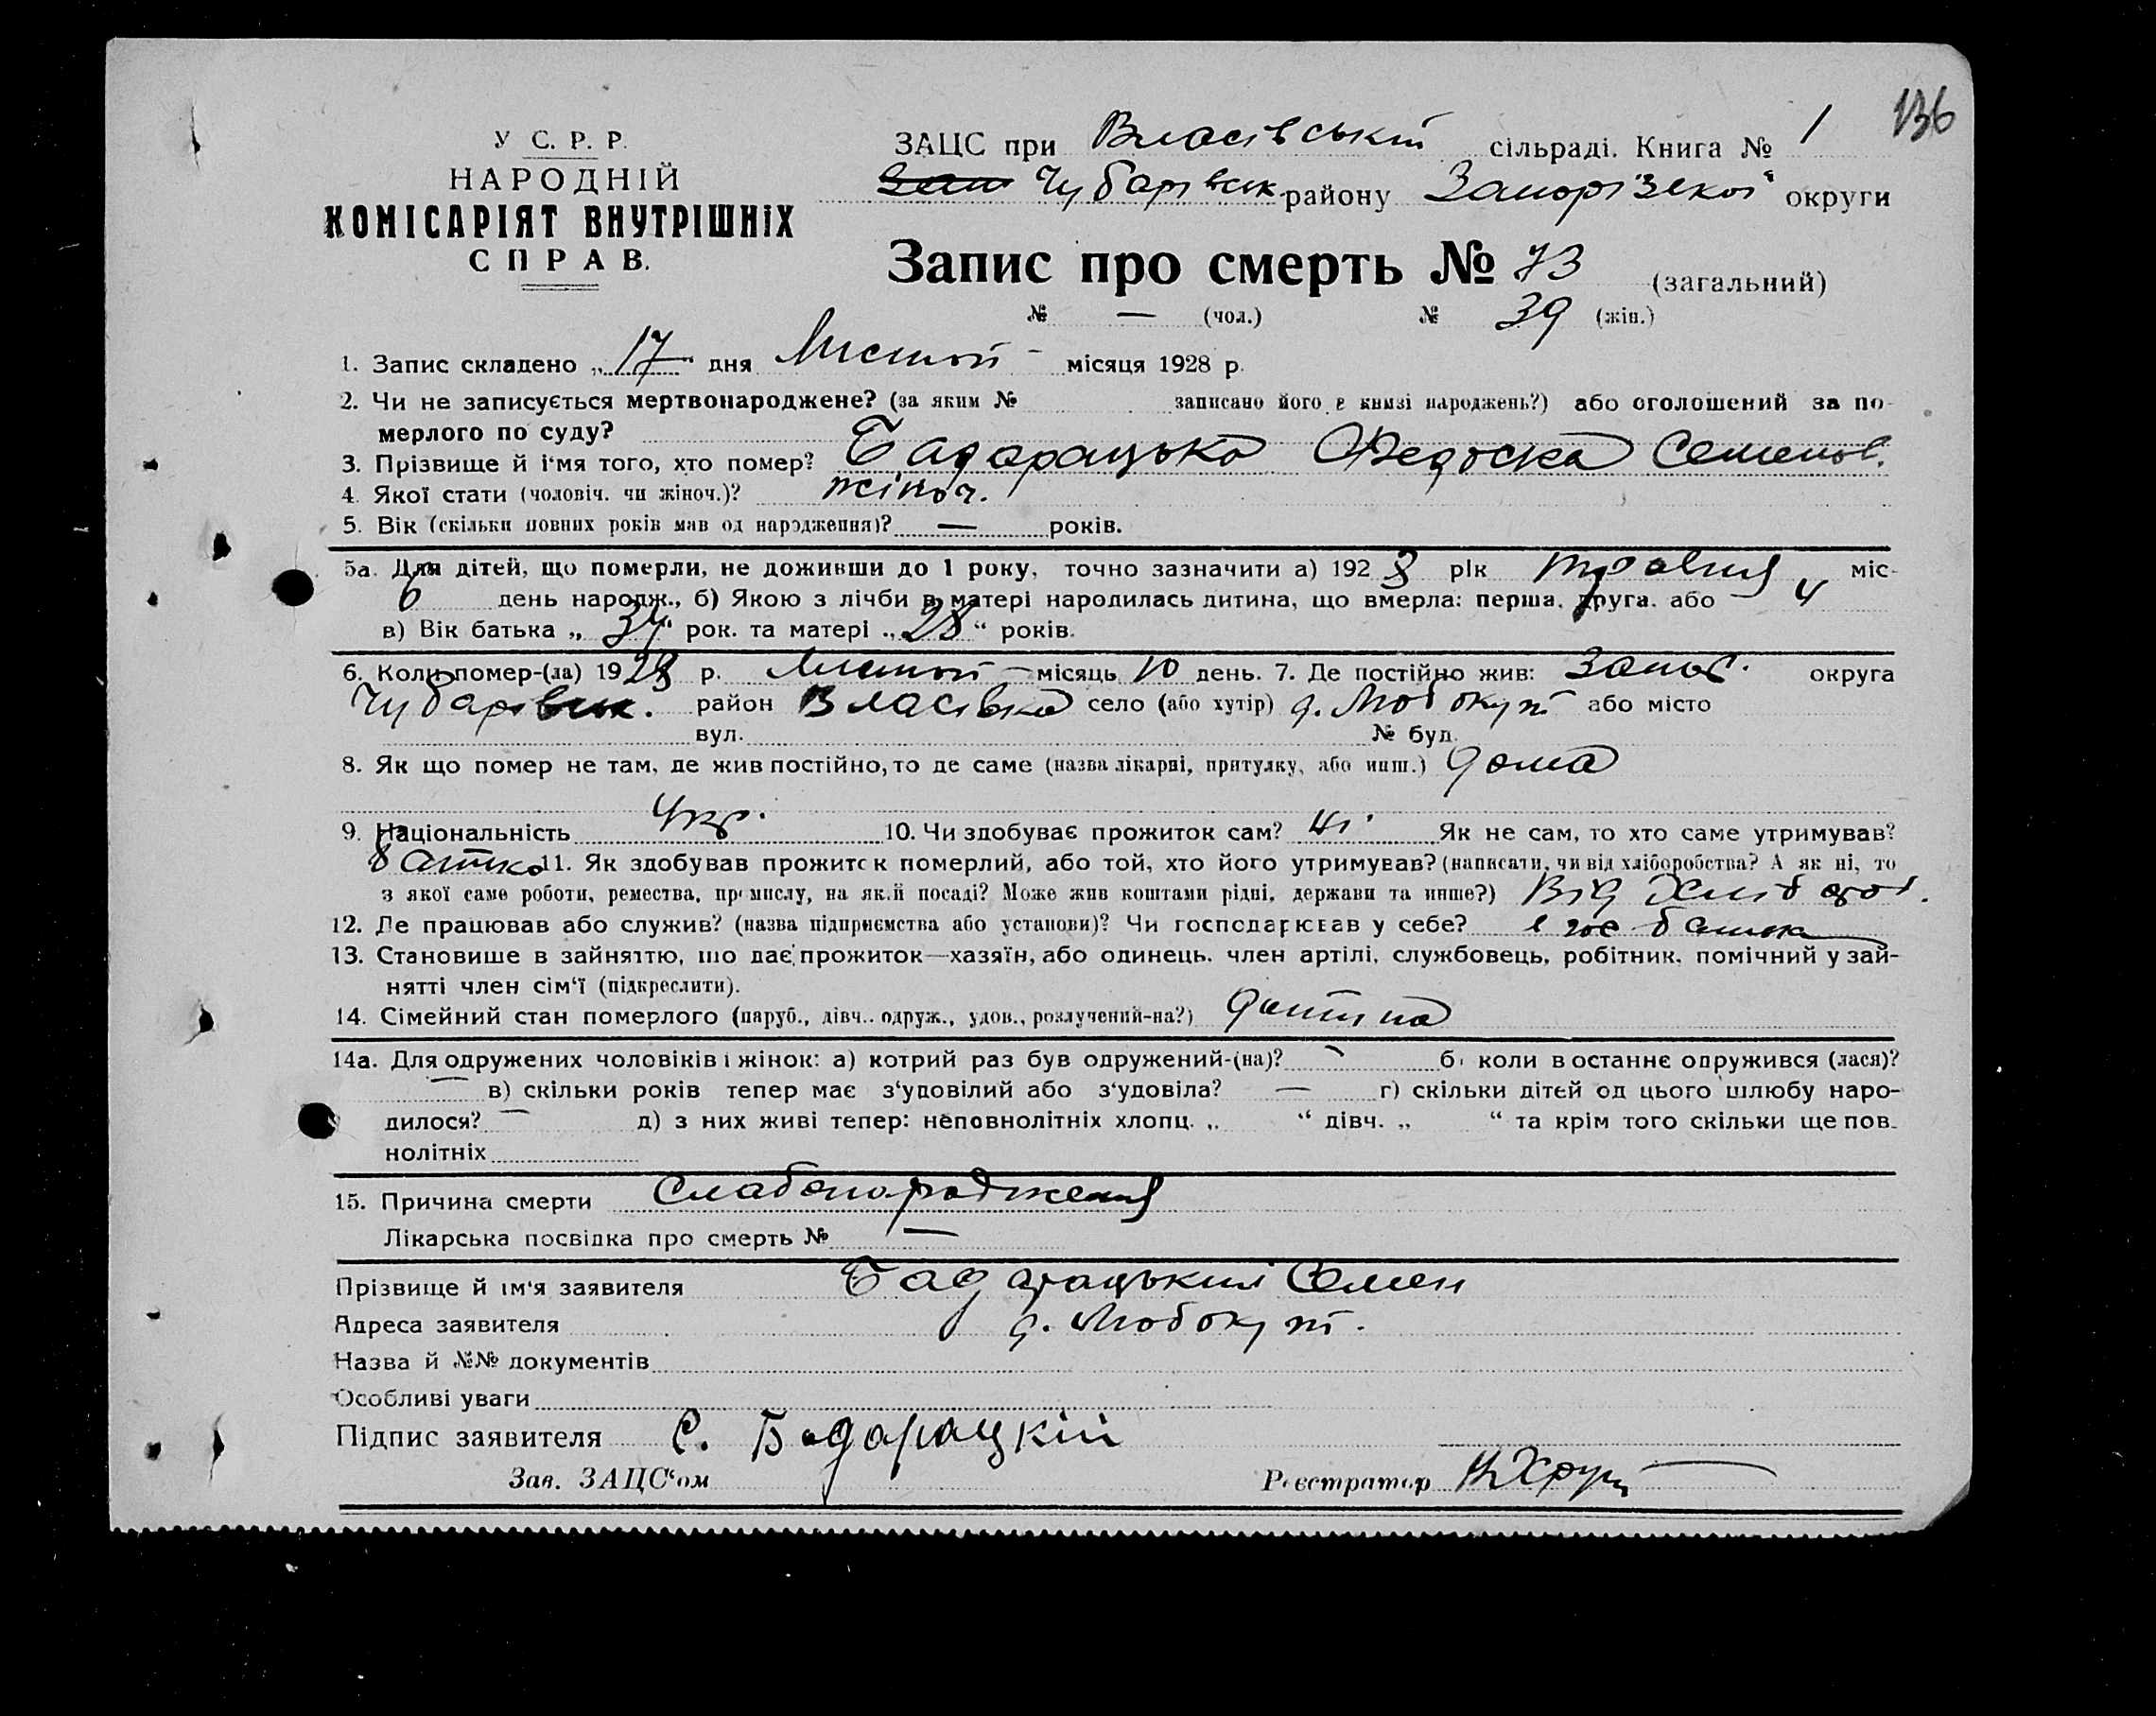 136
У С. Р. Р.
НАРОДНІЙ
КОМІСАРІЯТ ВНУТРІШНІХ
СПРАВ.
ЗАЦС при Власівській сільраді. Книга № 1
Чубарівськ. району Запорізької округи
Запис про смерть № 73 (загальний)
№ — (чол.) № 39 (жін.)
1. Запис складено „17" дня Листоп- місяця 1928 р.
2. Чи не записується мертвонароджене? (за яким № записано його в книзі народжень?) або оголошений за по-
мерлого по суду?
3. Прізвище й і'мя того, хто помер? Бадарацька Федоська Семенов.
4. Якої стати (чоловіч. чи жіноч.)? жіноч.
5. Вік (скільки повних років мав од народження)? — років.
5а. Для дітей, що померли, не доживши до 1 року, точно зазначити а) 1928 рік травня міс-
6 день народж., б) Якою з лічби в матері народилась дитина, що вмерла: перша, друга, або 4
в) Вік батька „34" рок. та матері „28" років.
6. Коли помер-(ла) 1928 р. Листоп- місяць 10 день. 7. Де постійно жив: Запор. округа
Чубарівськ. район Власівка село (або хутір) д. Любокут або місто
вул. № буд.
8. Як що помер не там, де жив постійно, то де саме (назва лікарні, притулку, або инш.) дома
9. Національність Укр. 10. Чи здобуває прожиток сам? ні. Як не сам, то хто саме утримував?
батько 11. Як здобував прожиток померлий, або той, хто його утримував? (написати, чи від хліборобства? А як ні, то
з якої саме роботи, ремества, промислу, на якій посаді? Може жив коштами рідні, держави та инше?) Від хлібороб.
12. Де працював або служив? (назва підприємства або установи)? Чи господарював у себе? в гос батька
13. Становище в зайняттю, що дає прожиток—хазяїн, або одинець, член артілі, службовець, робітник, помічний у зай-
нятті член сім'ї (підкреслити).
14. Сімейний стан померлого (паруб., дівч., одруж., удов., розлучений-на?) дитина
14а. Для одружених чоловіків і жінок: а) котрий раз був одружений-(на)? — б) коли в останнє одружився (лася)?
— в) скільки років тепер має з'удовілий або з'удовіла? — г) скільки дітей од цього шлюбу наро-
дилося? — д) з них живі тепер: неповнолітніх хлопц. „ " дівч. „ " та крім того скільки ще пов-
нолітніх
15. Причина смерти Слабонародження
Лікарська посвідка про смерть № —
Прізвище й ім'я заявителя Бадарацький Семен
Адреса заявителя д. Любокут.
Назва й №№ документів
Особливі уваги
Підпис заявителя С. Бадарацкій
Зав. ЗАЦС'ом Реєстратор